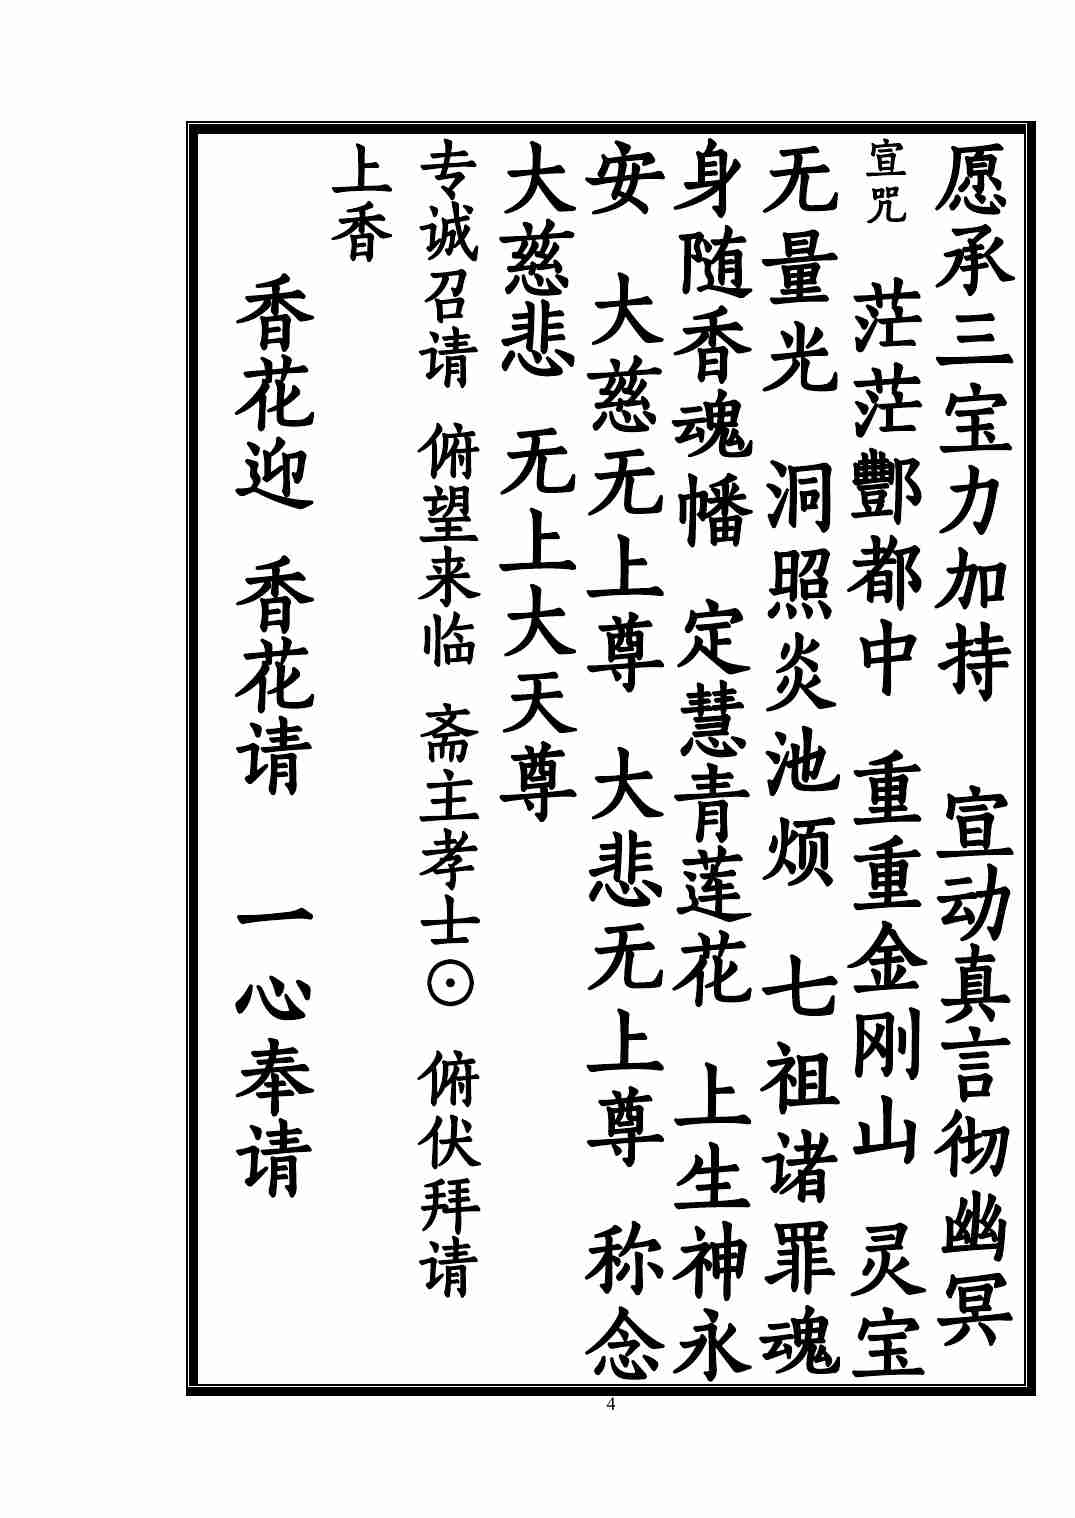 愿承三宝力加持　宣动真言彻幽冥
宣咒　茫茫酆都中　重重金刚山　灵宝
无量光　洞照炎池烦　七祖诸罪魂
身随香魂幡　定慧青莲花　上生神永
安　大慈无上尊　大悲无上尊　称念
大慈悲　无上大天尊
专诚召请　俯望来临　斋主孝士⊙　俯伏拜请
上香
香花迎　香花请　一心奉请
4